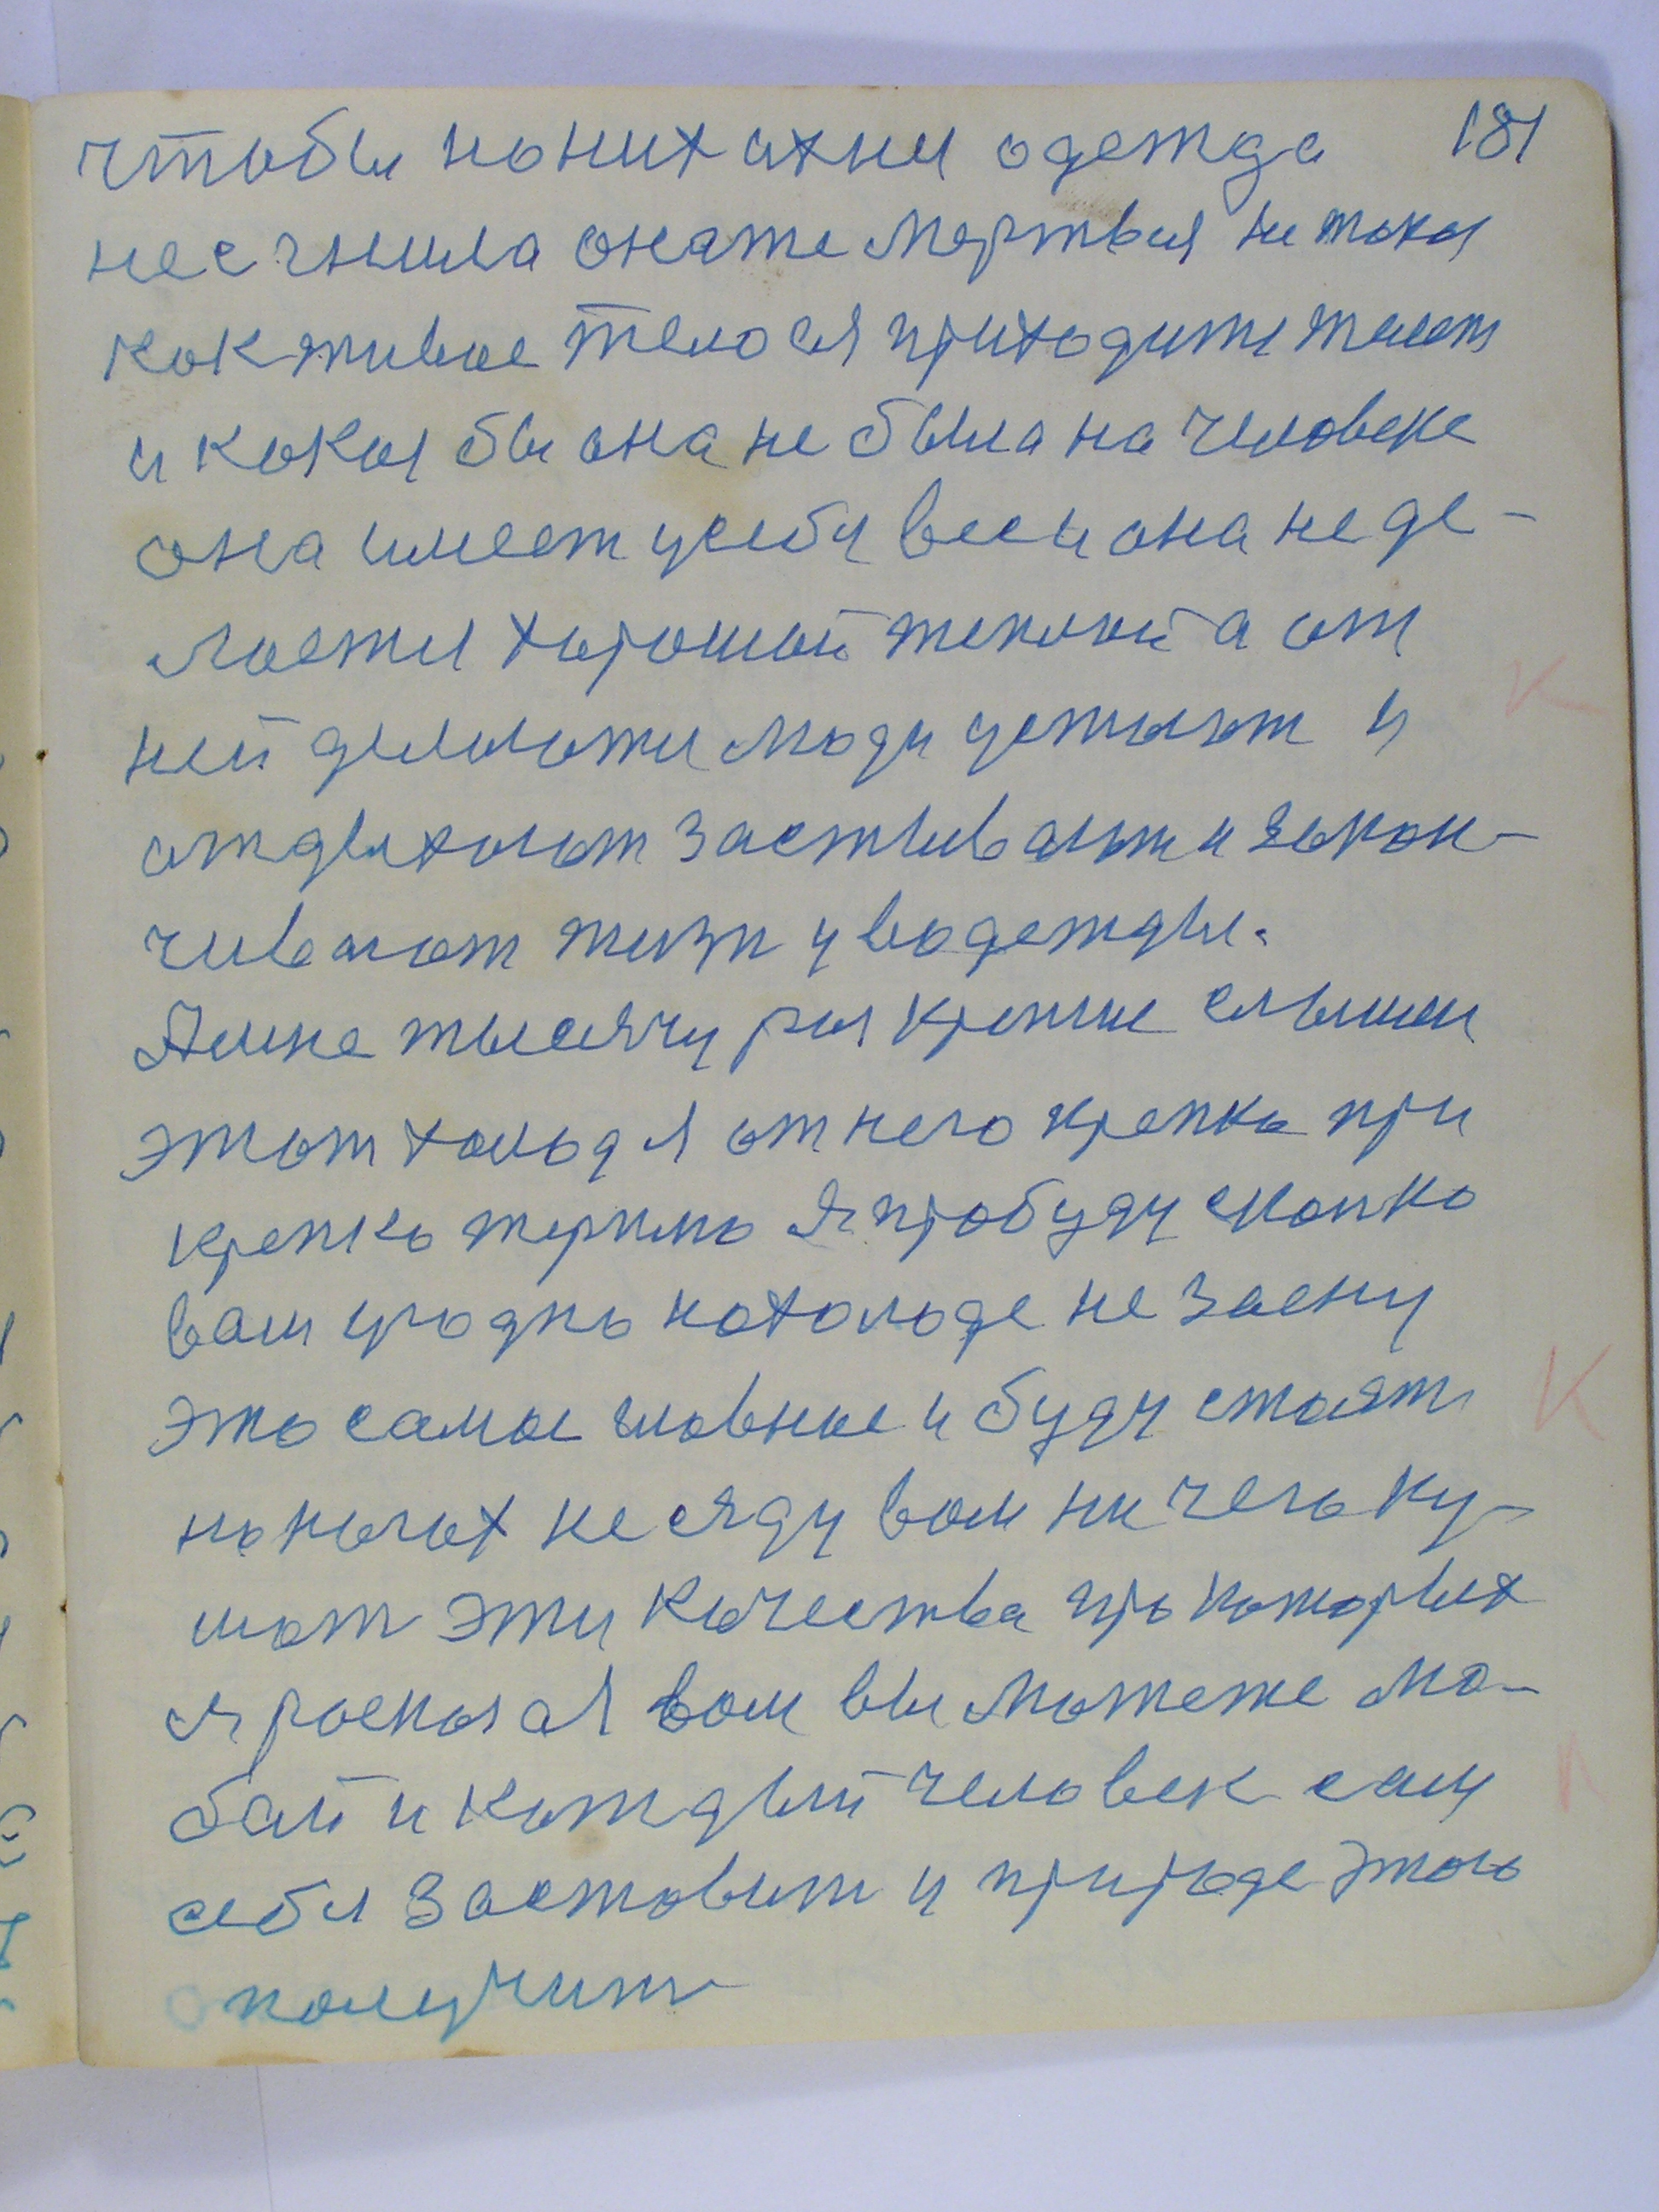 чтобы на них ихнея одежда 181
не с гныла она же мертвыя не такая
как живое тело ея приходится тлеет
и какая бы она не была на человеке
она имеет у себя вес и она не де-
лается хорошай теплай а от
ней делаюти люди устают и
отдыхают застывают и закон-
чивают жизн у водежды.
Я мне тысячу раз крепше слышен
этот холод я от него крепко при
крепко терплю Я пробуду сколко
вам угодно на холоде не засну
это самое главное и буду стоять
на ногах не сяду вом ничего ку-
шат эти качества про которых
я расказал вам вы можете лю-
бай и каждый человек сам
себя заставит и природе этого
получит